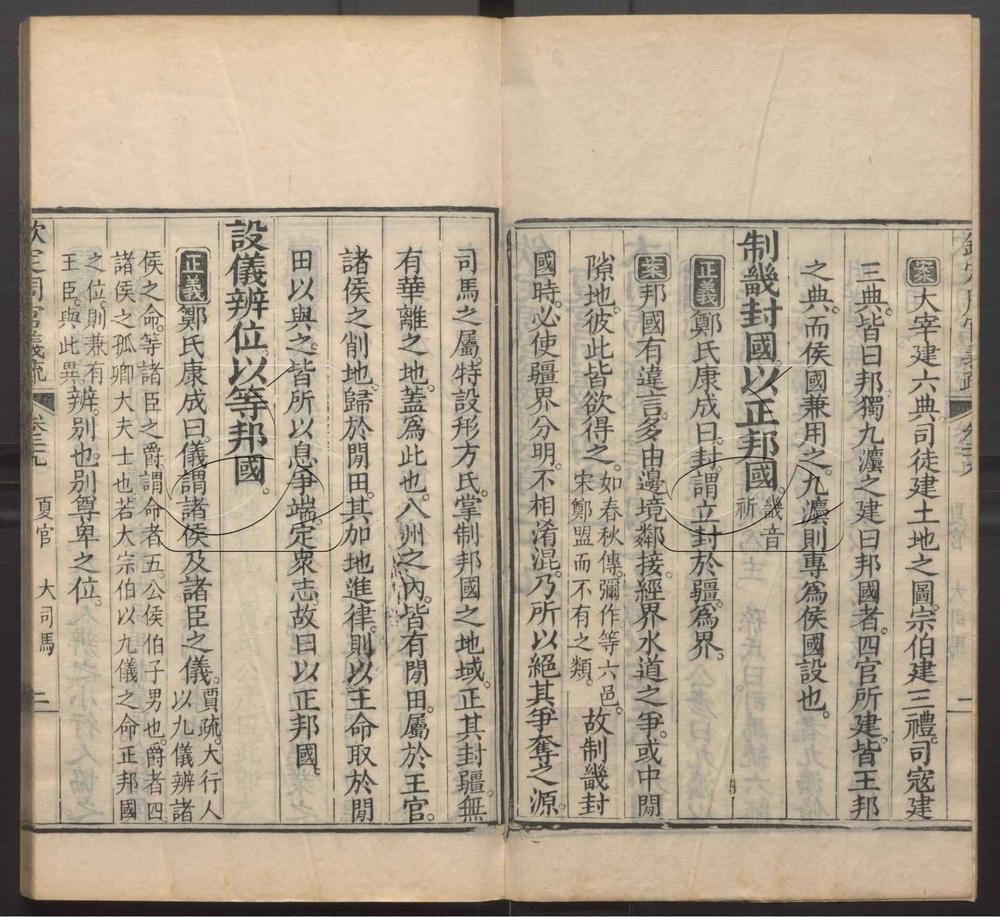 案大宰建六典。司徒建土地之圖。宗伯建三禮。司寇建
三典。皆曰邦。獨九灋之建曰邦國者。四官所建。皆王邦
之典。而侯國兼用之。九灋則專爲侯國設也。
制畿封國。以正邦國。畿音祈
正義鄭氏康成曰。封。謂立封於疆。爲界。
案邦國有違言。多由邊境鄰接。經界水道之爭。或中閒
隙地。彼此皆欲得之。如春秋傳。彌作等六邑。宋鄭盟而不有之類。故制畿封
國時。必使疆界分明。不相淆混。乃所以絕其爭奪之源。
司馬之屬。特設形方氏。掌制邦國之地域。正其封疆。無
有華離之地。蓋爲此也。八州之內。皆有閒田。屬於王官。
諸侯之削地。歸於閒田。其加地進律。則以王命取於閒
田以與之。皆所以息爭端。定衆志。故曰以正邦國。
設儀辨位。以等邦國。
正義鄭氏康成曰。儀。謂諸侯及諸臣之儀。賈疏。大行人以九儀辨諸
侯之命。等諸臣之爵。謂命者五。公侯伯子男也。爵者四。
諸侯之孤卿大夫士也。若大宗伯以九儀之命正邦國
之位。則兼有王臣。與此異。辨。別也。別尊卑之位。
欽定周官義疏 卷二十九 夏官 大司馬 二